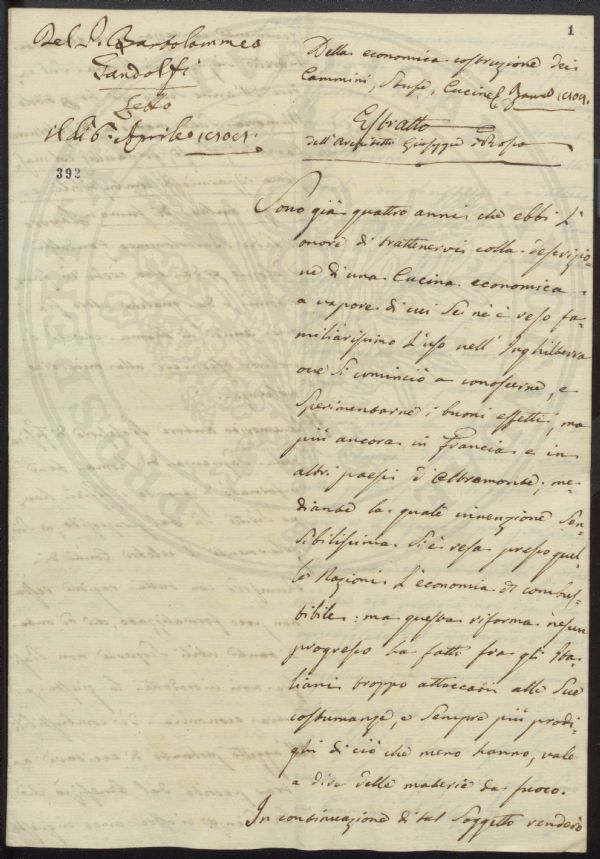 1
Del P. Bartolommeo
Gandolfi
Letto
il dì 6. Aprile
392
Della economica costruzione dei
Cammini, Stufe, Cucine &
Estratto
dell'Architetto Giuseppe
Sono già quattro anni che ebbi l'
onore di trattenervi colla descrizio-
ne di una Cucina economica
a vapore di cui se ne è reso fa-
miliarissimo l'uso nell' Inghilterra
ove si cominciò a conoscerne, e
sperimentarne i buoni effetti, ma
più ancora in Francia e in
altri paesi d'oltramonte; me-
diante la quale invenzione sen-
sibilissima si è resa presso quel-
le Nazioni l'economia di combus-
tibile: ma questa riforma nesun
progresso ha fatto fra gli Ita-
liani troppo attaccati alle sue
costumanze, e sempre più prodi-
ghi di ciò che meno hanno, vale
a dire delle materie da fuoco.
In continuazione di tal soggetto renderò